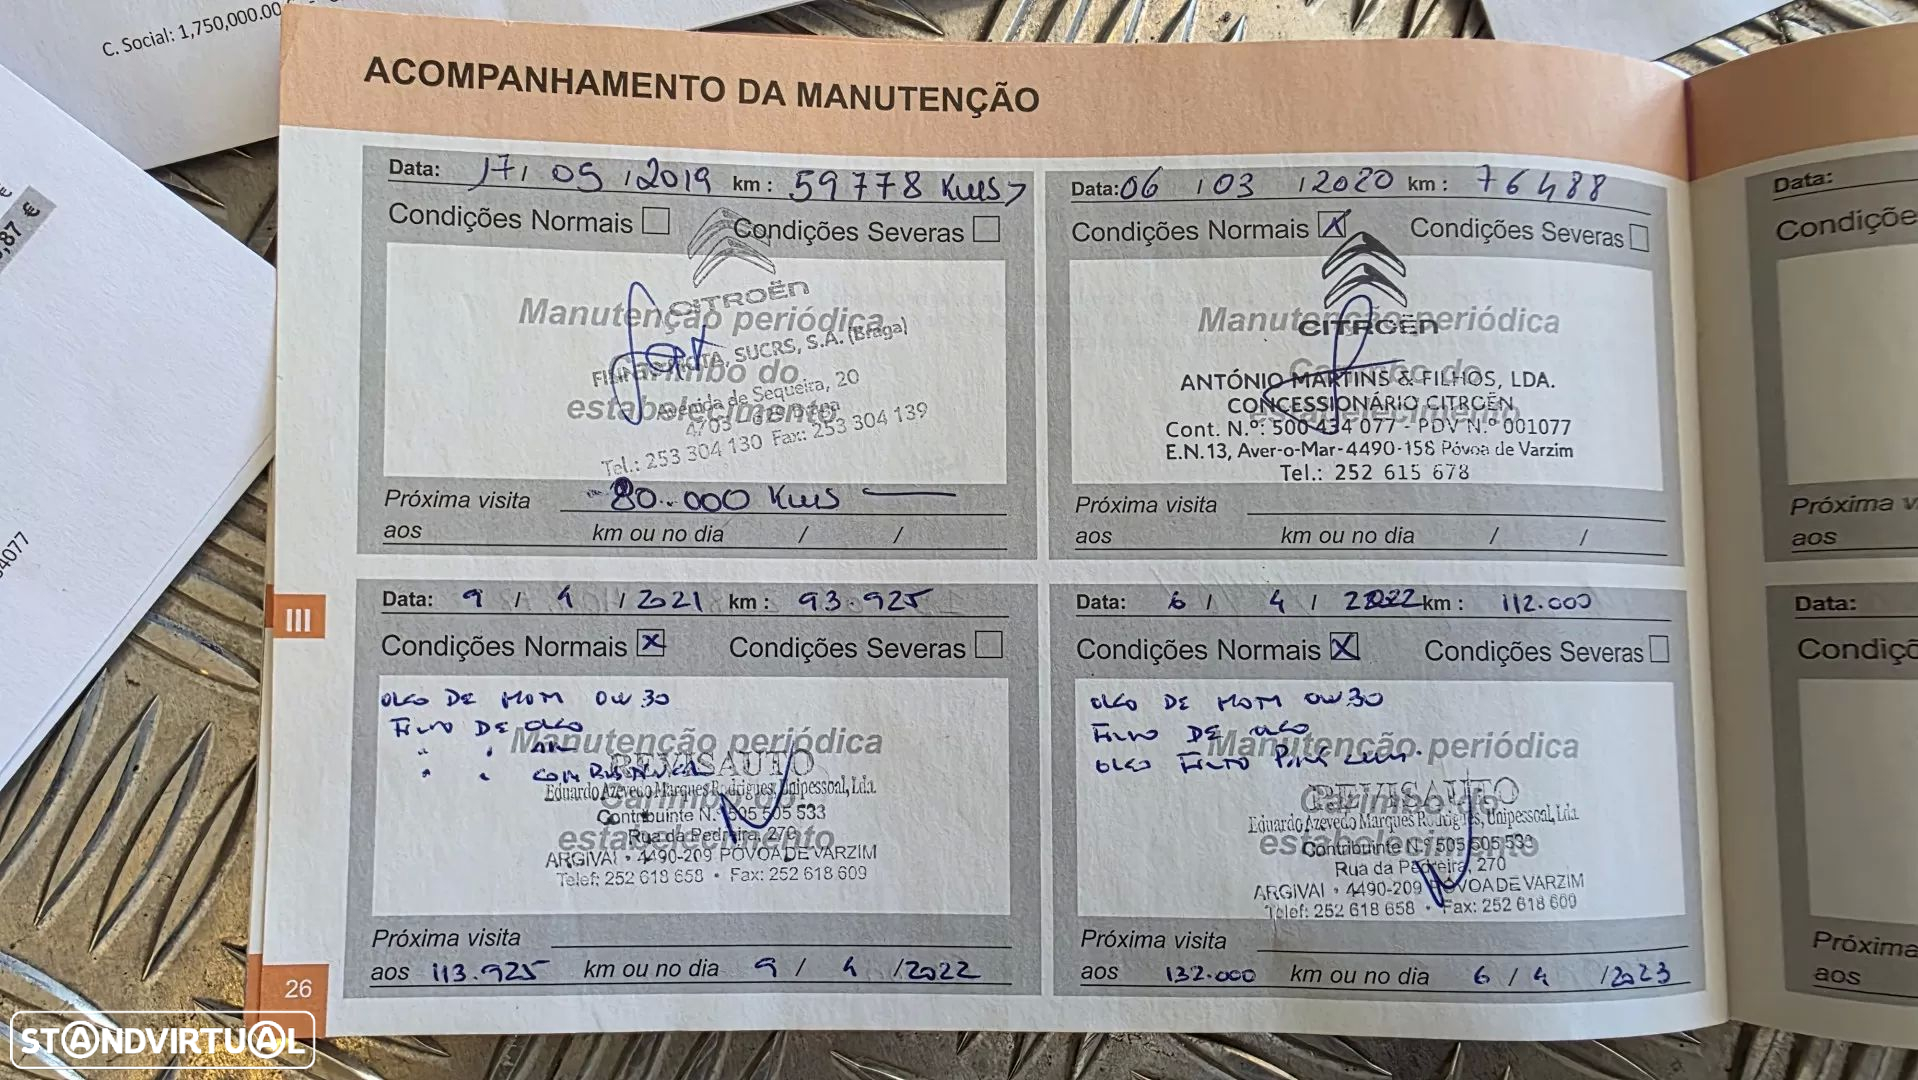 C. Social: 1,750,000.00
,87 €
€
34077
ACOMPANHAMENTO DA MANUTENÇÃO
Data: 17 / 05 / 2019 km : 59778 Kms
Condições Normais Condições Severas
CITROËN
Manutenção periódica
SUCRS, S.A. (Braga)
Carimbo do
Avenida de Sequeira, 20
estabelecimento
4703
Tel.: 253 304 130 Fax: 253 304 139
Próxima visita 80.000 Kms
aos km ou no dia / /
Data: 06 / 03 / 2020 km : 76488
Condições Normais X Condições Severas
Manutenção periódica
CITROËN
Carimbo do
ANTÓNIO MARTINS & FILHOS, LDA.
CONCESSIONÁRIO CITROËN
estabelecimento
Cont. N.º: 500 434 077 - PDV N.º 001077
E.N.13, Aver-o-Mar-4490-158 Póvoa de Varzim
Tel.: 252 615 678
Próxima visita
aos km ou no dia / /
III
Data: 9 / 4 / 2021 km : 93.925
Condições Normais X Condições Severas
OLEO DE MOTOR 0W30
FILTRO DE OLEO
" " AR
Manutenção periódica
" " COMBUSTIVEL
REVISAUTO
Eduardo Azevedo Marques Rodrigues, Unipessoal, Lda.
Carimbo do
Contribuinte N.º 505 505 533
Rua da Pedreira, 270
estabelecimento
ARGIVAI • 4490-209 PÓVOA DE VARZIM
Telef: 252 618 658 • Fax: 252 618 609
Próxima visita
aos 113.925 km ou no dia 9 / 4 / 2022
Data: 6 / 4 / 2022 km : 112.000
Condições Normais X Condições Severas
OLEO DE MOTOR 0W30
FILTRO DE OLEO
Manutenção periódica
OLEO FILTRO
REVISAUTO
Carimbo do
Eduardo Azevedo Marques Rodrigues, Unipessoal, Lda.
estabelecimento
Contribuinte N.º 505 505 533
Rua da Pedreira, 270
ARGIVAI • 4490-209 PÓVOA DE VARZIM
Telef: 252 618 658 • Fax: 252 618 609
Próxima visita
aos 132.000 km ou no dia 6 / 4 / 2023
26
Data:
Condiçõe
Próxima v
aos
Data:
Condiçõ
Próxima
aos
STANDVIRTUAL